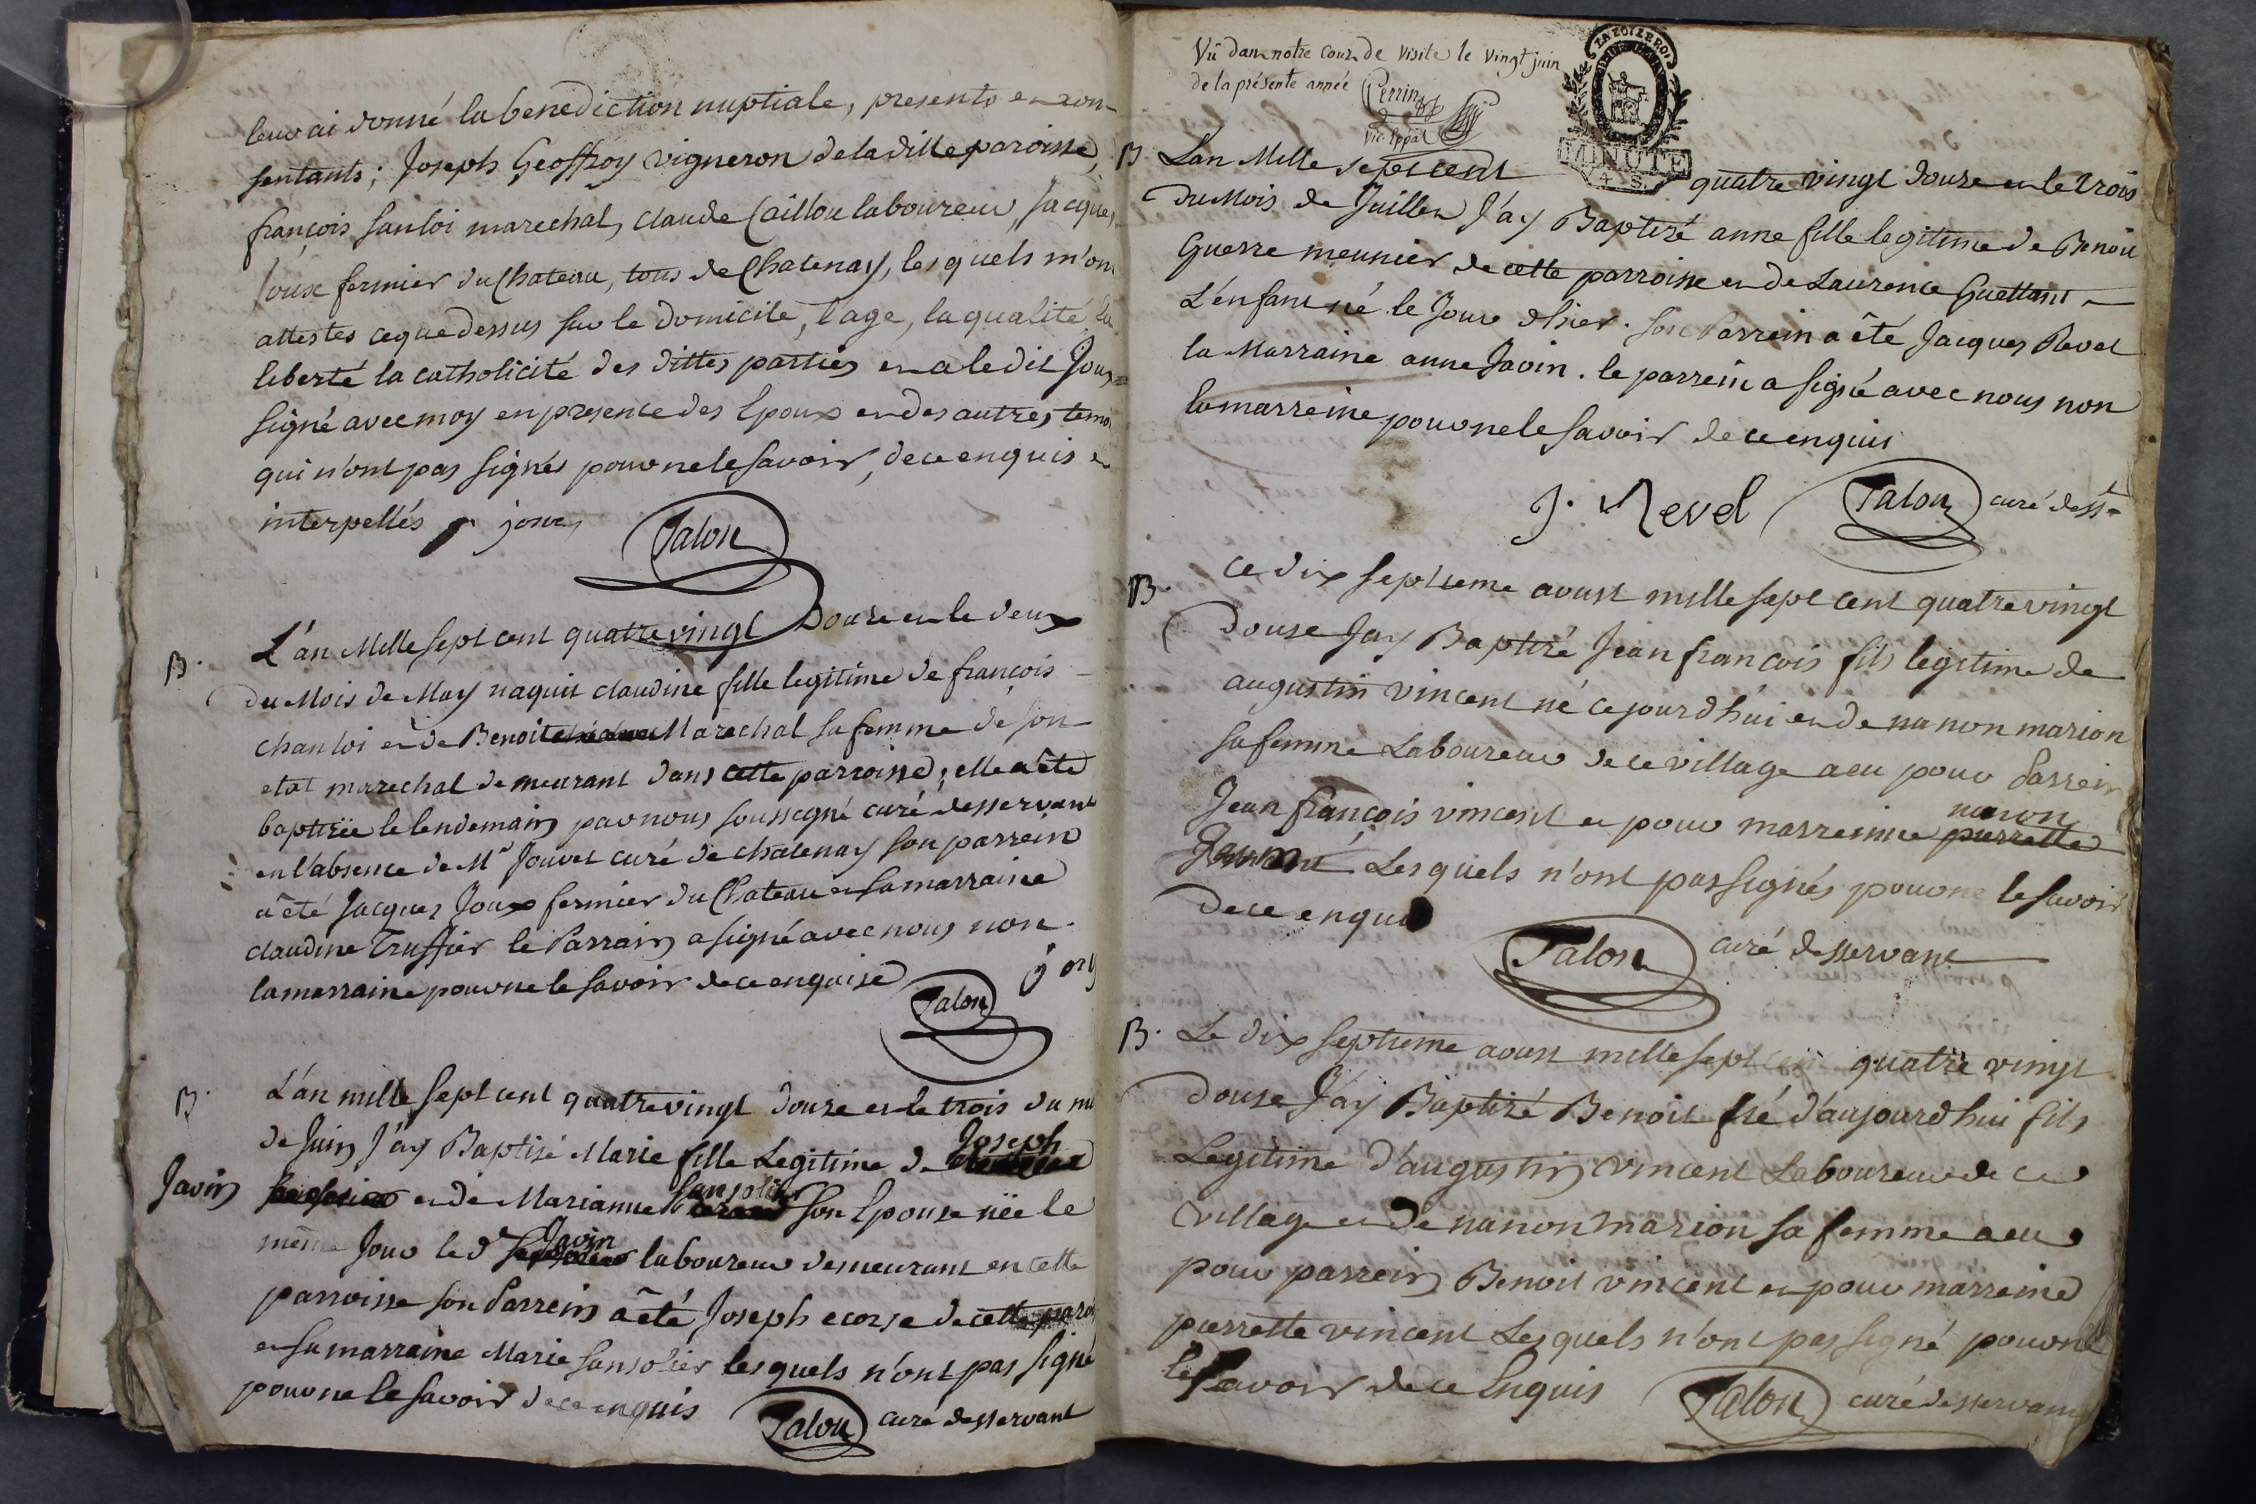 leur ai donné la benediction nuptiale, presents et con-
sentants; Joseph Geoffroy vigneron de la ditte paroisse,
françois sanloi marechal, claude Caillou laboureur, Jacques
Joux fermier du Chateau, tous de Chatenay, les quels m'ont
attestés ce que dessus sur le domicile, l'age, la qualité la
liberté la catholicité des dittes parties et a le dit Joux
signé avec moy en presence des Epoux et des autres temo
qui n'ont pas signés pour ne le savoir, de ce enquis et
interpellés joux
Talon
B. L'an Mille sept cent quatre vingt Douze et le deux
du Mois de May naquit claudine fille legitime de françois
chanloi et de Benoite Marechal sa femme de son
etat marechal demeurant dans cette parroisse; elle a êté
baptizëe le lendemain par nous soussigné curé desservant
en l'absence de Mr Jouvet curé de chatenay son parrein
a êté Jacques Joux fermier du Chateau et sa marraine
claudine Truffier le Parrain a signé avec nous non
la marraine pour ne le savoir de ce enquise
Talon
B. L'an mille sept cent quatre vingt douze et le trois du m
de Juin J'ay Baptisé Marie fille Legitime de Joseph
Javin et de Marianne sansolier son Epouse nëe le
même Jour le dt Javin laboureur demeurant en cette
parroisse son Parrein a êté Joseph ecorse de cette paro
et sa marraine Marie sansolier les quels n'ont pas signé
pour ne le savoir de ce enquis Talon curé desservant
Vû dans notre cour de visite le vingt juin
de la présente année Perrin
vic. eppal
LA LOI LE ROI
MINUTE
4 S.
B L'an Mille sept cent quatre vingt douze et le trois
du Mois de Juillet J'ay Baptizé anne fille legitime de Benoit
Guerre meunier de cette parroisse et de Laurence Guettant
L'enfant né le Jour d'hier. son Parrein a êté Jacques Revel
la Marraine anne Javin. le parrein a signé avec nous non
la marreine pour ne le savoir de ce enquis
J. Revel Talon curé desst
B. ce dix septieme aoust mille sept cent quatre vingt
douse Jay Baptizé Jean françois fils legitime de
augustin vincent né ce jourd'hui et de nanon marion
sa femme Laboureur de ce village a eu pour Parrein
Jean françois vincent et pour marreinne pierrette
nanon
Les quels n'ont pas signés pour ne le savoir
de ce enquis
Talon curé desservant
B. Le dix septieme aoust mille sept cent quatre vingt
douse J'ay Baptizé Benoit né d'aujourd'hui fils
Legitime d'augustin vincent Laboureur de ce
village et de nanon marion sa femme a eu
pour parrein Benoit vincent et pour marreine
pierrette vincent Les quels n'ont pas signé pour ne
le savoir de ce Enquis Talon curé desservant